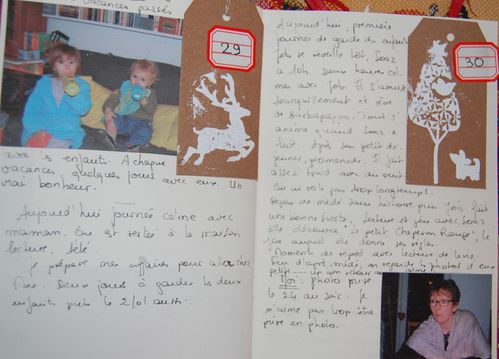 vacances passés
29
avec 3 enfants. A chaque
vacances quelques jours avec eux. Un
vrai bonheur.
Aujourd'hui journée calme avec
maman. On est restées à la maison
lecture, télé
Je prépare mes affaires pour aller chez
Deux jours à garder les deux
enfants puis le 2/01
30
Aujourd'hui première
journée de garde du enfant
se réveille tôt,
à 10h. Deux heures cal-
mes avec Job. Il s'amuse
tranquillement et rêve
de Barbapapa. Tout s'
anime quand
fait. Après son petit dé-
jeuner, promenade. Il fait
assez froid avec du vent
On ne reste pas trop longtemps.
Repas de midi sans histoire puis Job fait
une bonne sieste. Lecture et jeu avec
Elle découvre "Le petit Chaperon Rouge", le
jeu auquel elle donne ses règles.
Moment de repos avec lecture de livre.
Fin d'après-midi, on regarde les photos d'eux
petits
Moi: photo prise
le 24 au soir. Je
n'aime pas trop être
prise en photo.